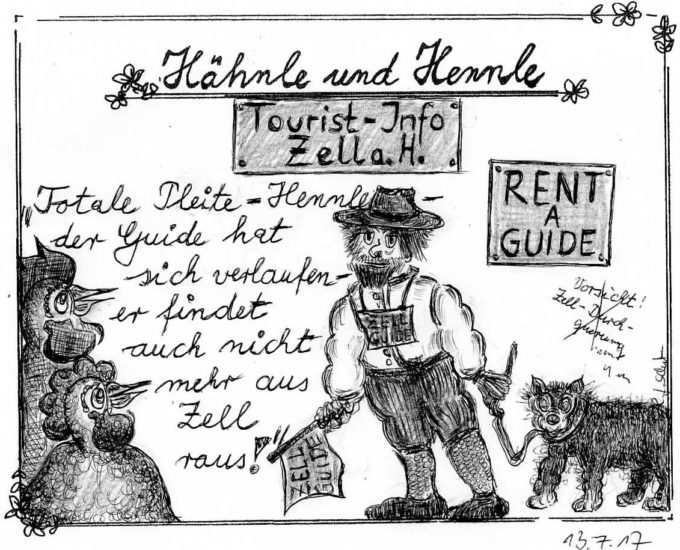 Hähnle und Hennle
Tourist-Info
Zell a. H.
RENT
A
GUIDE
„Totale Pleite-Hennle-
der Guide hat
sich verlaufen-
er findet
auch nicht
mehr aus
Zell
raus!"
ZELL
GUIDE
ZELL
GUIDE
Vorsicht!
Zell-Durch-
querung
13.7.17